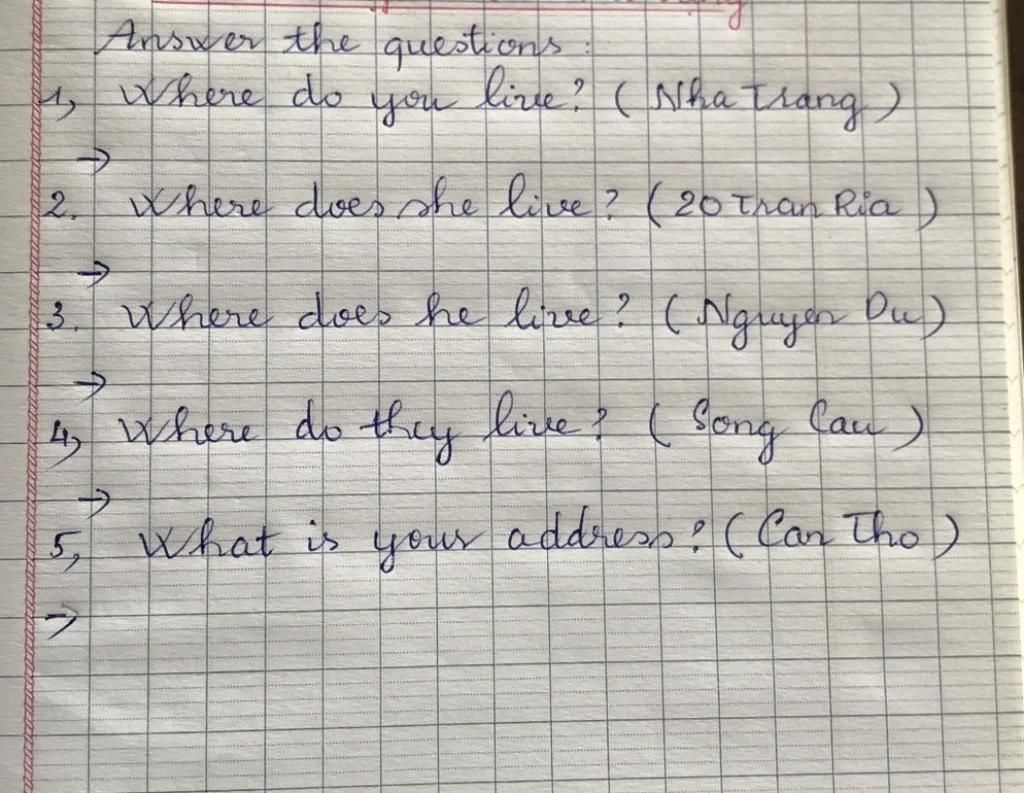 Answer the questions:
1, Where do you live? (Nha Trang)
→
2. Where does she live? (20 Tran Ria)
→
3. Where does he live? (Nguyen Du)
→
4, Where do they live? (Song Cau)
→
5, What is your address? (Can Tho)
→